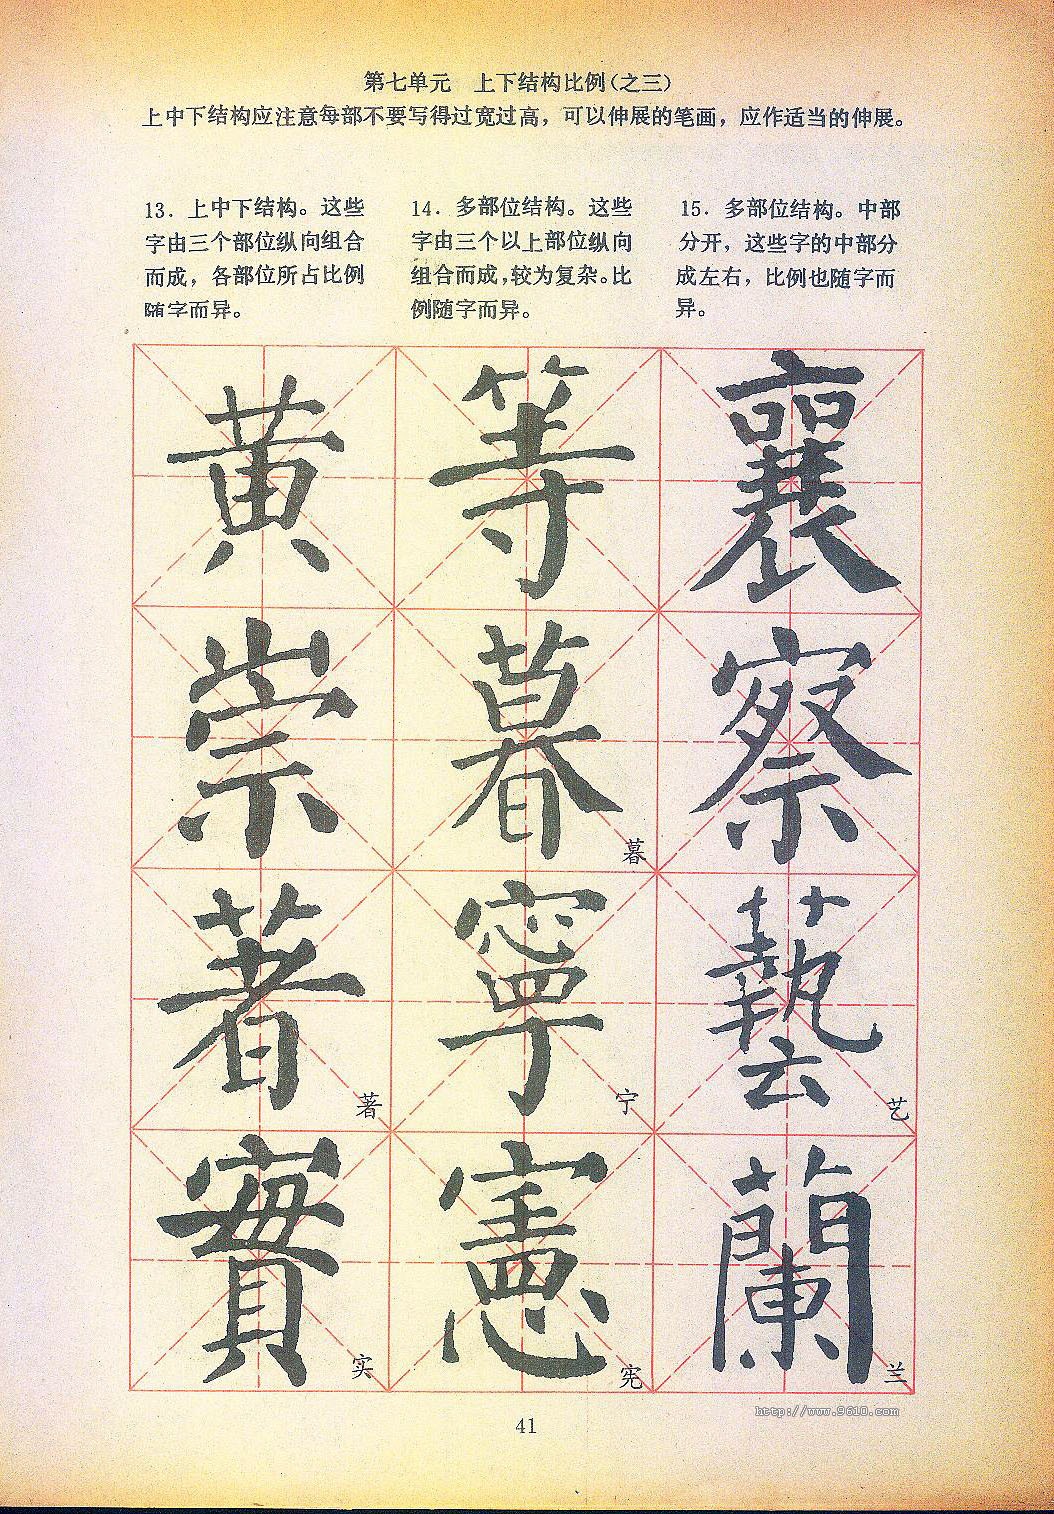 第七单元　上下结构比例(之三)
上中下结构应注意每部不要写得过宽过高，可以伸展的笔画，应作适当的伸展。
13. 上中下结构。这些
字由三个部位纵向组合
而成，各部位所占比例
随字而异。
14. 多部位结构。这些
字由三个以上部位纵向
组合而成，较为复杂。比
例随字而异。
15. 多部位结构。中部
分开，这些字的中部分
成左右，比例也随字而
异。
黄 等 襄
崇 暮 察
暮
著 寧 藝
著 宁 艺
實 憲 蘭
实 宪 兰
http://www.9610.com
41